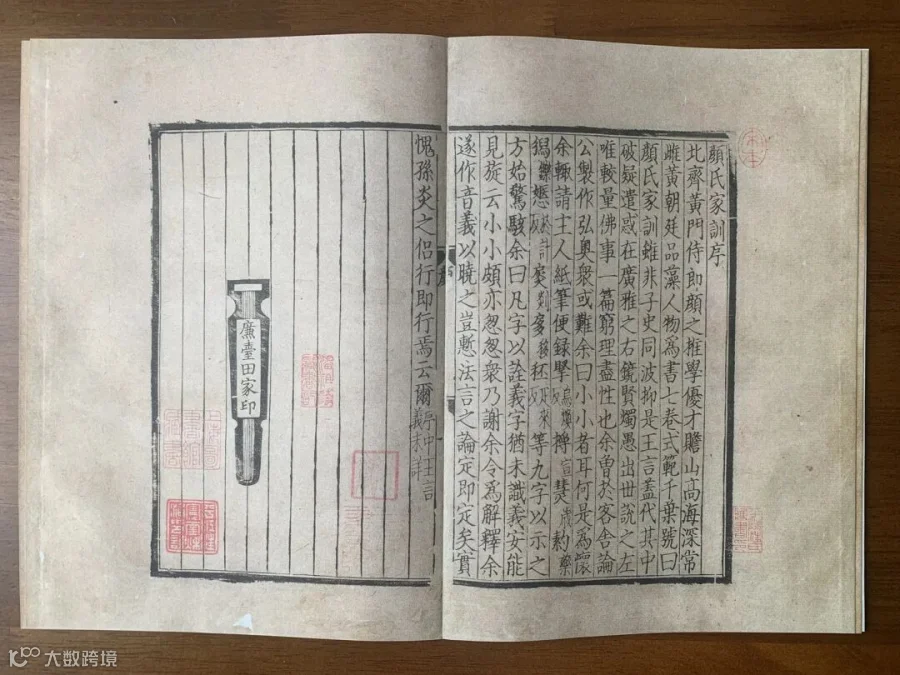 顏氏家訓序
北齊黃門侍郎顏之推學優才贍山高海深常
雌黃朝廷品藻人物為書七卷式範千葉號曰
顏氏家訓雖非子史同波抑是王言蓋代其中
破疑遣惑在廣雅之右鏡賢燭愚出世說之左
唯較量佛事一篇窮理盡性也余曾於客舍論
公製作弘奧眾或難余曰小小者耳何是為懷
余輒請主人紙筆便錄
等九字以示之
方始驚駭余曰凡字以詮義字猶未識義安能
見旋云小小頗亦怱怱眾乃謝余令為解釋余
遂作音義以曉之豈慙法言之論定即定矣實
愧孫炎之侶行即行焉云爾
廉臺田家印
大数跨境